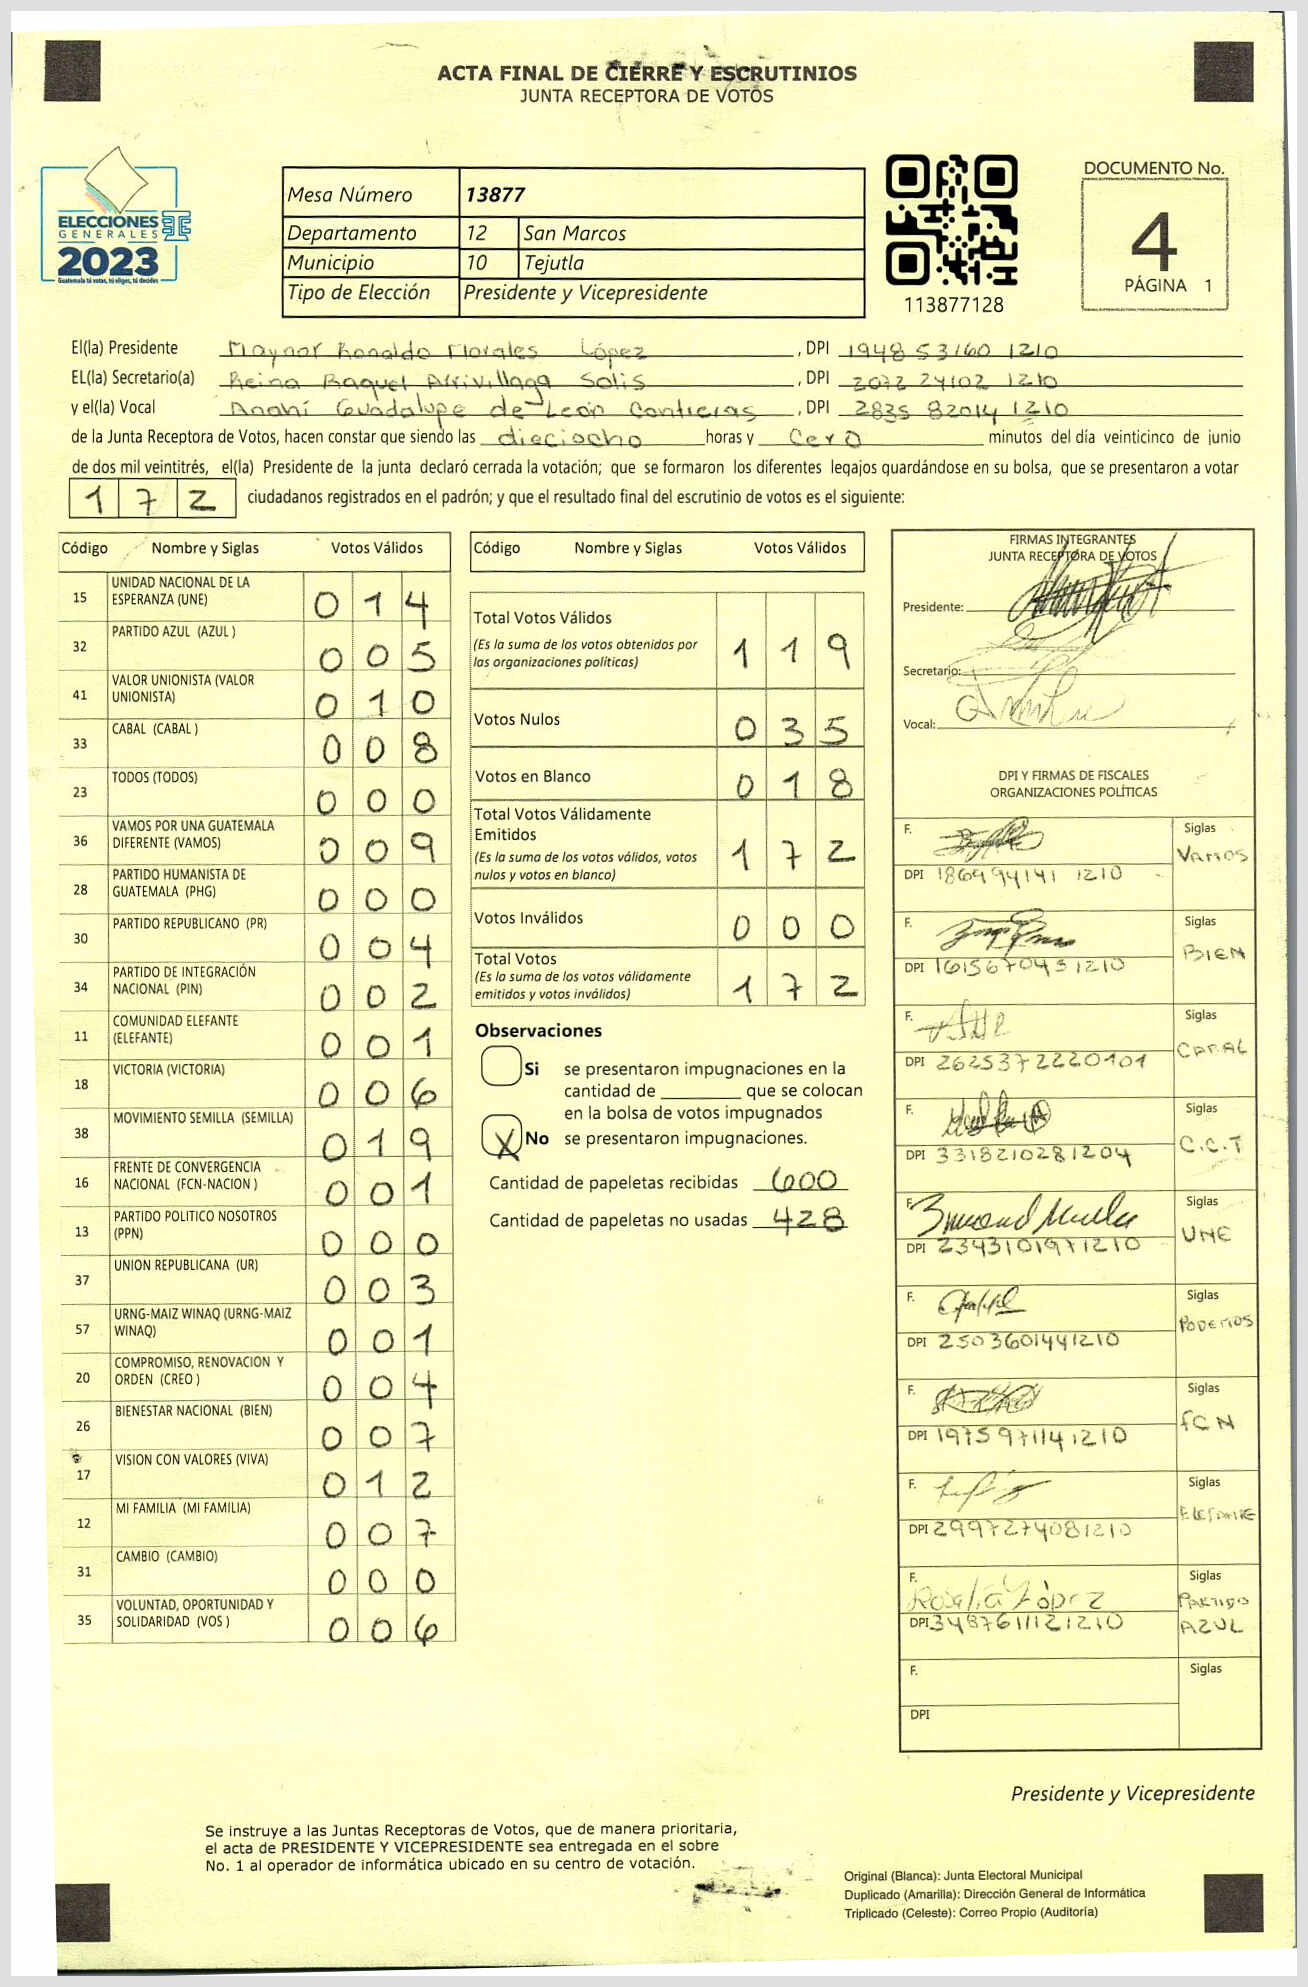 ACTA FINAL DE CIERRE Y ESCRUTINIOS
JUNTA RECEPTORA DE VOTOS
ELECCIONES
GENERALES
2023
Guatemala tú votas, tú eliges, tú decides
Mesa Número 13877
Departamento 12 San Marcos
Municipio 10 Tejutla
Tipo de Elección Presidente y Vicepresidente
113877128
DOCUMENTO No.
4
PÁGINA 1
El(la) Presidente Maynor Ronaldo Morales López, DPI 1948 53160 1210
EL(la) Secretario(a) Reina Raquel Arrivillaga Solis, DPI 2072 24102 1210
y el(la) Vocal Anahí Guadalupe de León Contreras, DPI 2835 82014 1210
de la Junta Receptora de Votos, hacen constar que siendo las dieciocho horas y cero minutos del día veinticinco de junio
de dos mil veintitrés, el(la) Presidente de la junta declaró cerrada la votación; que se formaron los diferentes legajos guardándose en su bolsa, que se presentaron a votar
172 ciudadanos registrados en el padrón; y que el resultado final del escrutinio de votos es el siguiente:
Código Nombre y Siglas Votos Válidos
15 UNIDAD NACIONAL DE LA ESPERANZA (UNE) 014
32 PARTIDO AZUL (AZUL ) 005
41 VALOR UNIONISTA (VALOR UNIONISTA) 010
33 CABAL (CABAL ) 008
23 TODOS (TODOS) 000
36 VAMOS POR UNA GUATEMALA DIFERENTE (VAMOS) 009
28 PARTIDO HUMANISTA DE GUATEMALA (PHG) 000
30 PARTIDO REPUBLICANO (PR) 004
34 PARTIDO DE INTEGRACIÓN NACIONAL (PIN) 002
11 COMUNIDAD ELEFANTE (ELEFANTE) 001
18 VICTORIA (VICTORIA) 006
38 MOVIMIENTO SEMILLA (SEMILLA) 019
16 FRENTE DE CONVERGENCIA NACIONAL (FCN-NACION ) 001
13 PARTIDO POLITICO NOSOTROS (PPN) 000
37 UNION REPUBLICANA (UR) 003
57 URNG-MAIZ WINAQ (URNG-MAIZ WINAQ) 001
20 COMPROMISO, RENOVACION Y ORDEN (CREO ) 004
26 BIENESTAR NACIONAL (BIEN) 007
17 VISION CON VALORES (VIVA) 012
12 MI FAMILIA (MI FAMILIA) 007
31 CAMBIO (CAMBIO) 000
35 VOLUNTAD, OPORTUNIDAD Y SOLIDARIDAD (VOS ) 006
Código Nombre y Siglas Votos Válidos
Total Votos Válidos 119
(Es la suma de los votos obtenidos por
las organizaciones políticas)
Votos Nulos 035
Votos en Blanco 018
Total Votos Válidamente
Emitidos 172
(Es la suma de los votos válidos, votos
nulos y votos en blanco)
Votos Inválidos 000
Total Votos 172
(Es la suma de los votos válidamente
emitidos y votos inválidos)
Observaciones
Si se presentaron impugnaciones en la
cantidad de ________ que se colocan
en la bolsa de votos impugnados
X No se presentaron impugnaciones.
Cantidad de papeletas recibidas 600
Cantidad de papeletas no usadas 428
FIRMAS INTEGRANTES
JUNTA RECEPTORA DE VOTOS
Presidente:
Secretario:
Vocal:
DPI Y FIRMAS DE FISCALES
ORGANIZACIONES POLÍTICAS
F. Siglas VAMOS
DPI 186994141 1210
F. Siglas BIEN
DPI 1615670431210
F. Siglas CABAL
DPI 2625372220101
F. Siglas C.C.T
DPI 3318210281204
F. Siglas UNE
DPI 2343101971210
F. Siglas PODEMOS
DPI 2503601441210
F. Siglas FCN
DPI 1975971141210
F. Siglas ELEFANTE
DPI 2997274081210
F. Rosalía López Siglas PARTIDO AZUL
DPI 3487611121210
F. Siglas
DPI
Presidente y Vicepresidente
Se instruye a las Juntas Receptoras de Votos, que de manera prioritaria,
el acta de PRESIDENTE Y VICEPRESIDENTE sea entregada en el sobre
No. 1 al operador de informática ubicado en su centro de votación.
Original (Blanca): Junta Electoral Municipal
Duplicado (Amarilla): Dirección General de Informática
Triplicado (Celeste): Correo Propio (Auditoría)